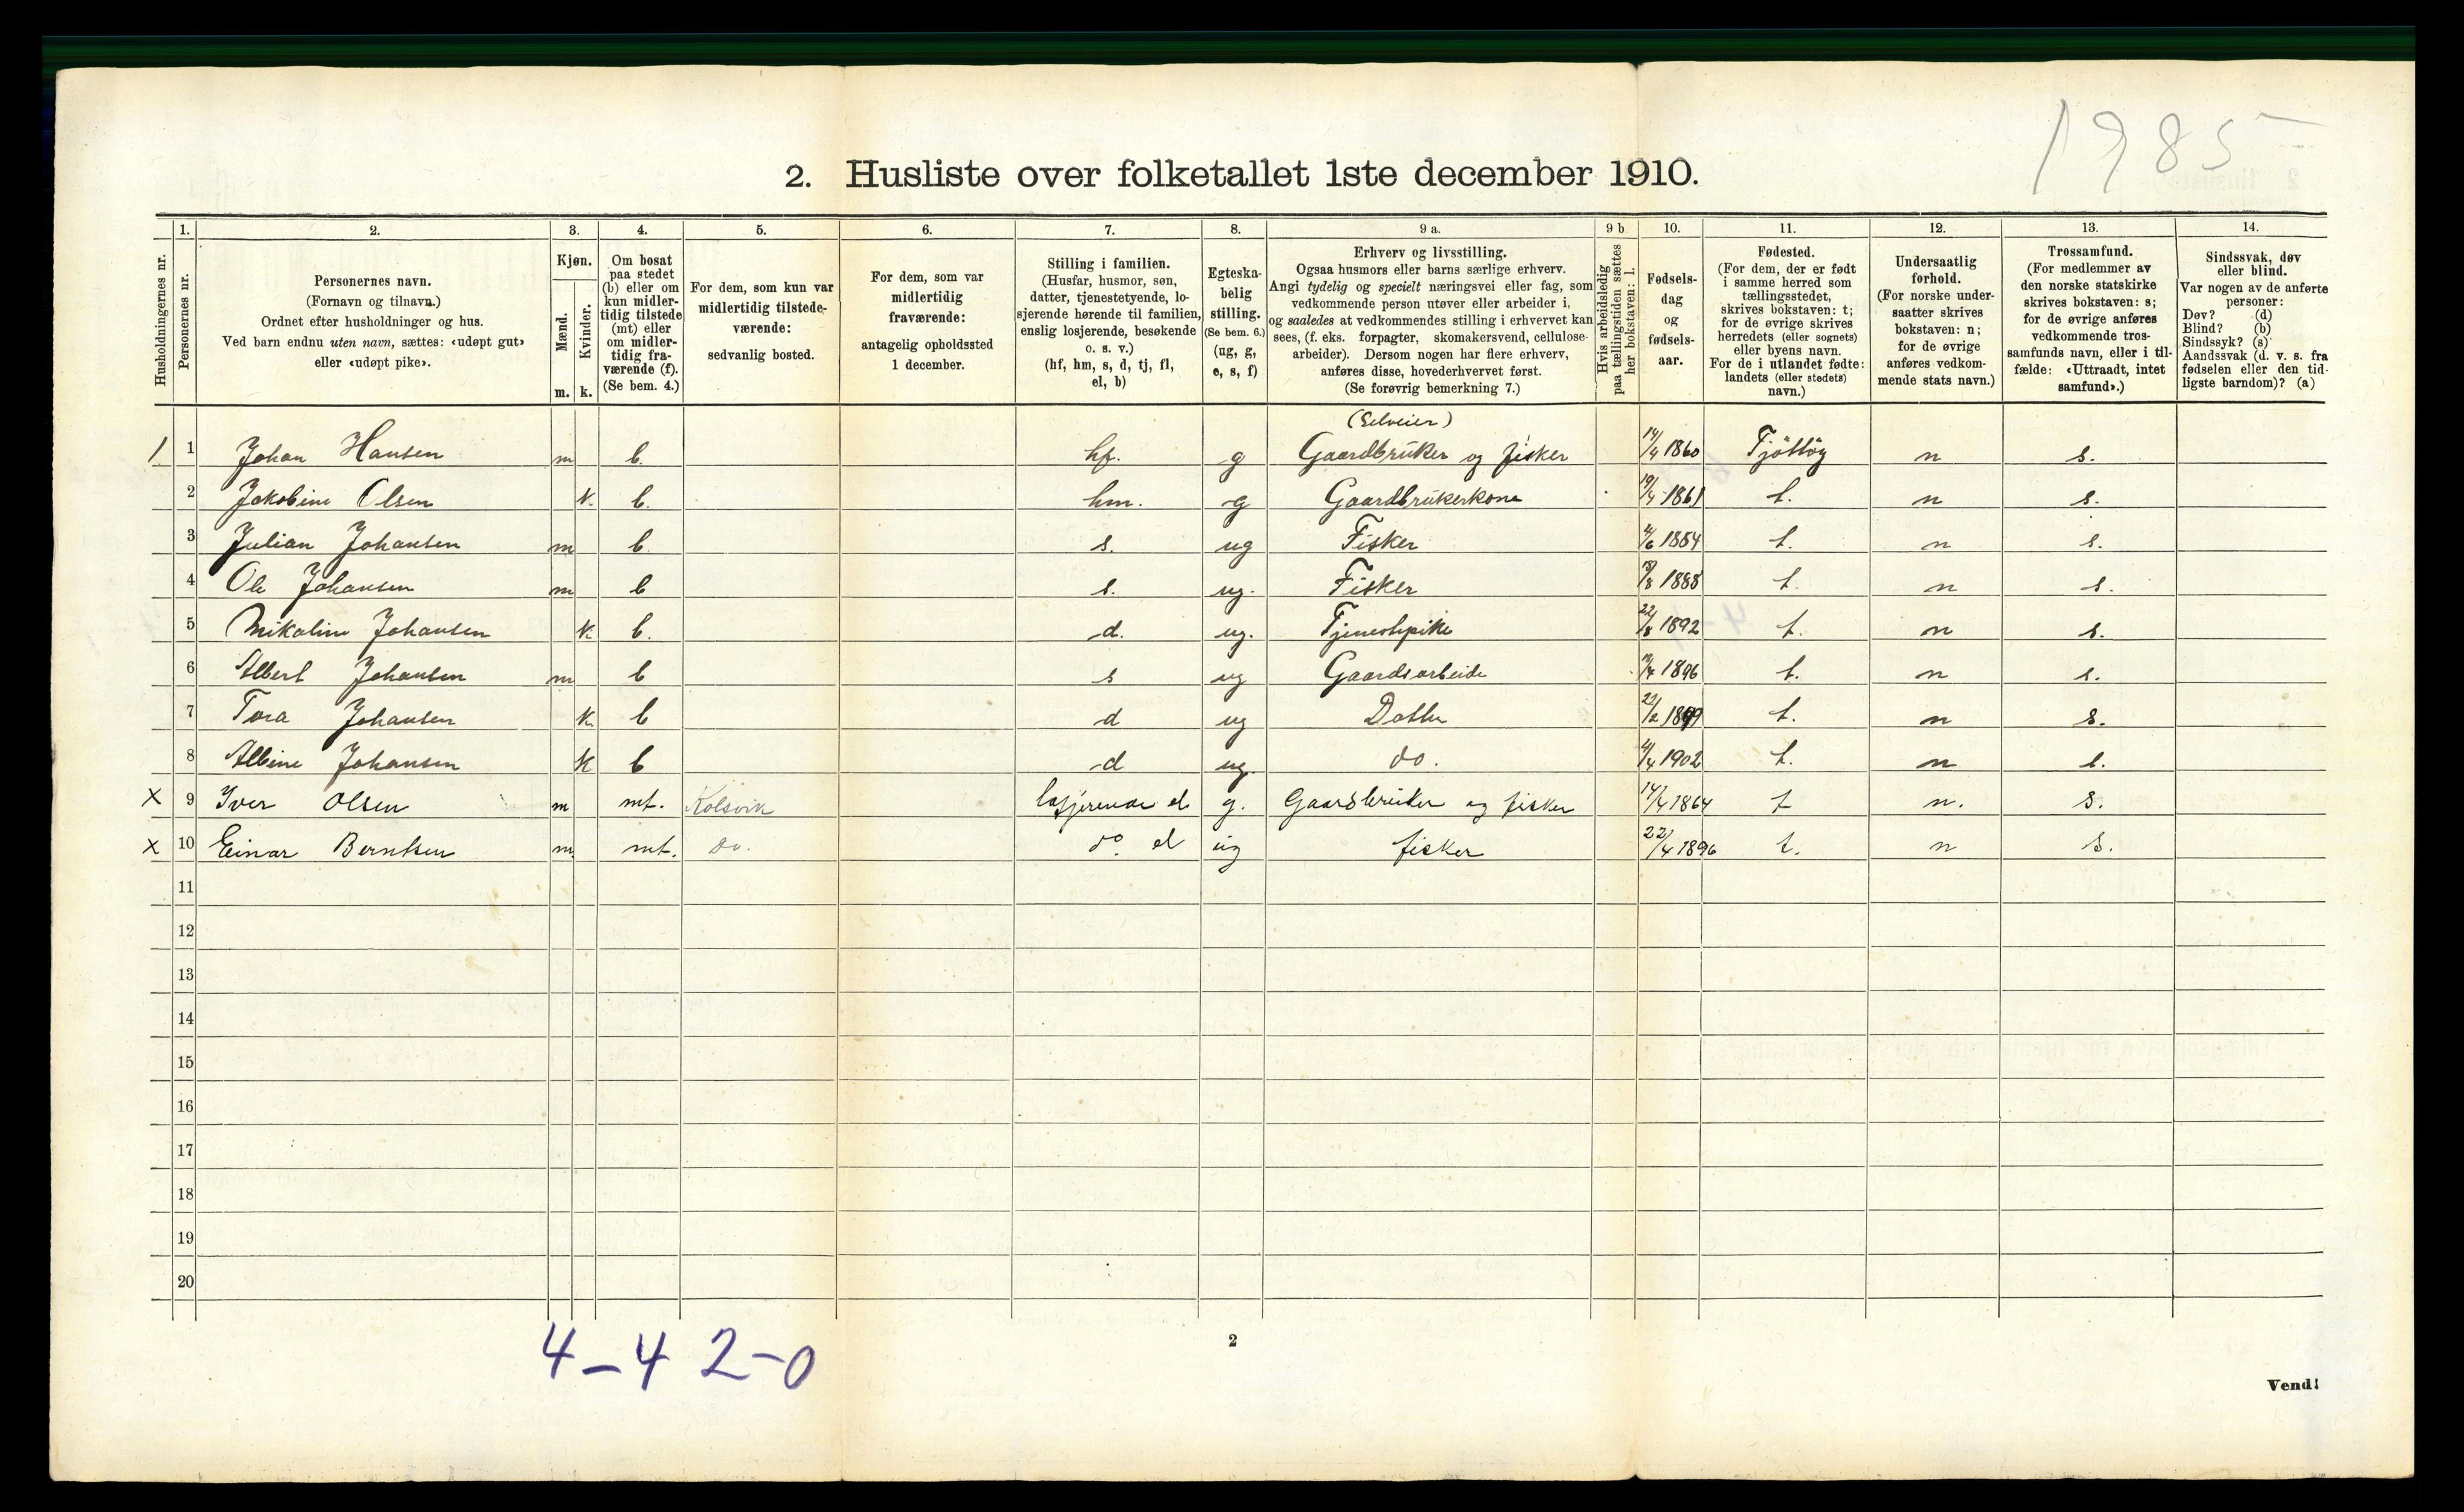 1985
2. Husliste over folketallet 1ste december 1910.
Husholdningernes nr.
1.
Personernes nr.
2.
Personernes navn.
(Fornavn og tilnavn.)
Ordnet efter husholdninger og hus.
Ved barn endnu uten navn, sættes: «udøpt gut»
eller «udøpt pike».
3.
Kjøn.
Mænd.
Kvinder.
m. k.
4.
Om bosat
paa stedet
(b) eller om
kun midler-
tidig tilstede
(mt) eller
om midler-
tidig fra-
værende (f).
(Se bem. 4.)
5.
For dem, som kun var
midlertidig tilstede-
værende:
sedvanlig bosted.
6.
For dem, som var
midlertidig
fraværende:
antagelig opholdssted
1 december.
7.
Stilling i familien.
(Husfar, husmor, søn,
datter, tjenestetyende, lo-
sjerende hørende til familien,
enslig losjerende, besøkende
o. s. v.)
(hf, hm, s, d, tj, fl,
el, b)
8.
Egteska-
belig
stilling.
(Se bem. 6.)
(ug, g,
e, s, f)
9 a.
Erhverv og livsstilling.
Ogsaa husmors eller barns særlige erhverv.
Angi tydelig og specielt næringsvei eller fag, som
vedkommende person utøver eller arbeider i,
og saaledes at vedkommendes stilling i erhvervet kan
sees, (f. eks. forpagter, skomakersvend, cellulose-
arbeider). Dersom nogen har flere erhverv,
anføres disse, hovederhvervet først.
(Se forøvrig bemerkning 7.)
9 b
Hvis arbeidsledig
paa tællingstiden sættes
her bokstaven: l.
10.
Fødsels-
dag
og
fødsels-
aar.
11.
Fødested.
(For dem, der er født
i samme herred som
tællingsstedet,
skrives bokstaven: t;
for de øvrige skrives
herredets (eller sognets)
eller byens navn.
For de i utlandet fødte:
landets (eller stedets)
navn.)
12.
Undersaatlig
forhold.
(For norske under-
saatter skrives
bokstaven: n;
for de øvrige
anføres vedkom-
mende stats navn.)
13.
Trossamfund.
(For medlemmer av
den norske statskirke
skrives bokstaven: s;
for de øvrige anføres
vedkommende tros-
samfunds navn, eller i til-
fælde: «Uttraadt, intet
samfund».)
14.
Sindssvak, døv
eller blind.
Var nogen av de anførte
personer:
Døv? (d)
Blind? (b)
Sindssyk? (s)
Aandssvak (d. v. s. fra
fødselen eller den tid-
ligste barndom)? (a)
(Selveier)
1 1 Johan Hansen m b. hf. g Gaardbruker og fisker 14/4 1860 Tjøttøy n s.
2 Jakobine Olsen k. b. hm. g Gaardbrukerkone 19/4 1861 t. n s.
3 Julian Johansen m b. s. ug Fisker 4/6 1884 t. n s.
4 Ole Johansen m b s. ug. Fisker /8 1888 t. n s.
5 Mikaline Johansen k b. d. ug. Tjenestepike 22/8 1892 t. n s.
6 Albert Johansen m b s ug Gaardsarbeide /4 1896 t. n s.
7 Tora Johansen k b d ug Datter 22/2 1899 t. n s.
8 Albine Johansen k b d ug. do. 4/4 1902 t. n s.
x 9 Iver Olsen m mt. Kolsvik losjerende el g. Gaardbruker og fisker 14/4 1864 t n. s.
x 10 Einar Berntsen m. mt. do. do el ug fisker 22/4 1896 t. n s.
11
12
13
14
15
16
17
18
19
20
4-4 2-0
2
Vend!